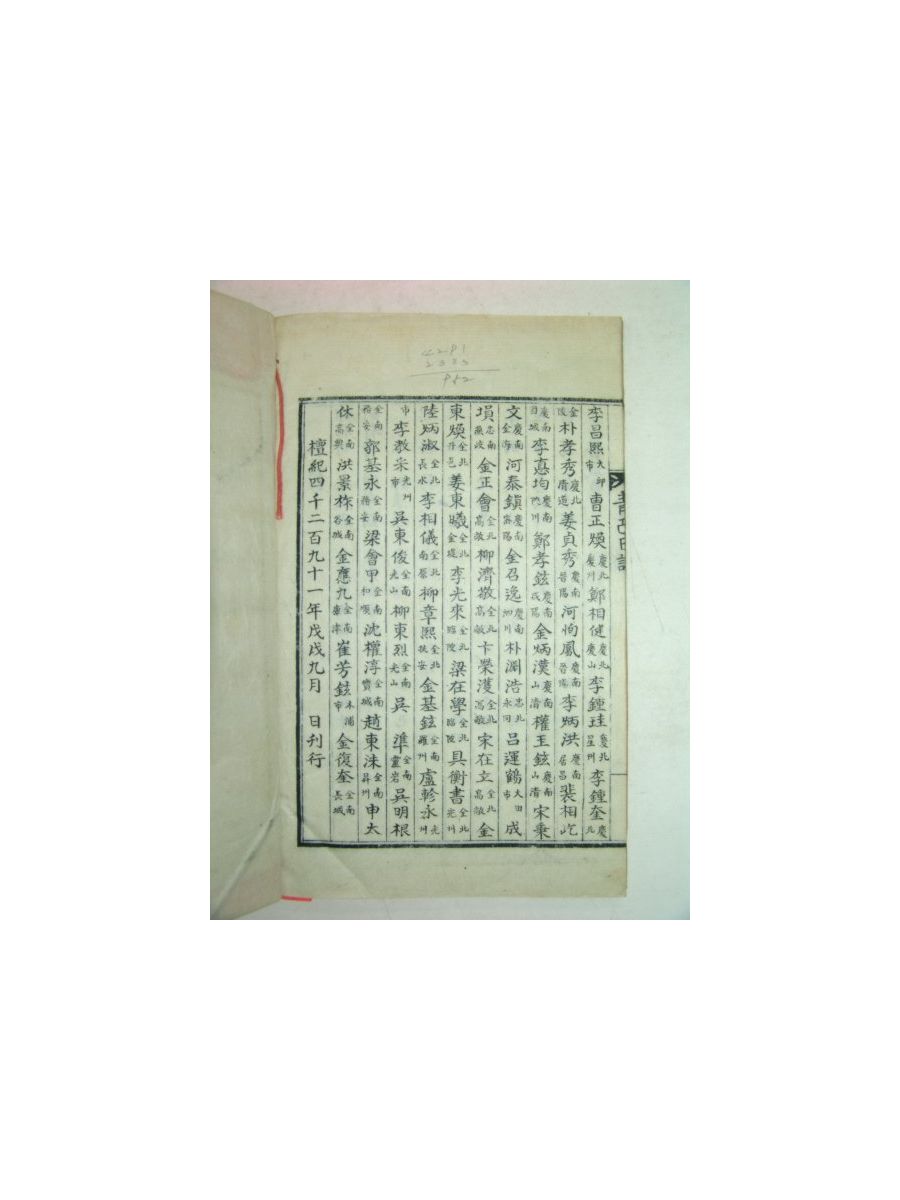 4291
2333
李昌熙大邱市曹正煥慶北慶州鄭相健慶北慶山李鍾珪慶北星州李鍾奎慶北
金陵朴孝秀慶北清道姜貞秀慶南晉陽河恂鳳慶南晉陽李炳洪慶南居昌裴相屹
慶南固城李悳均慶南陜川鄭孝鉉慶南咸陽金炳漢慶南山清權玉鉉慶南山清宋秉
文慶南金海河泰鎭慶南密陽金召逸慶南泗川朴淵浩忠北永同呂運鶴大田市成
塤忠南燕岐金正會全北高敞柳濟敬全北高敞卞榮濩全北高敞宋在立全北高敞金
東煥全北井邑姜東曦全北金堤李光來全北臨陂梁在學全北臨陂具衡書全北光州
陸炳淑全北長水李相儀全北南原柳章熙全北扶安金基鉉全南羅州盧軫永光州
市李敎采光州吳東俊全南光山柳東烈全南光山吳準全南靈岩吳明根
全南務安郭基永全南務安梁會甲全南和順沈權淳全南寶城趙東洙全南昇州申太
休全南高興洪景栐全南谷城金應九全南康津崔芳鉉木浦市金復奎全南長城
檀紀四千二百九十一年戊戌九月 日刊行